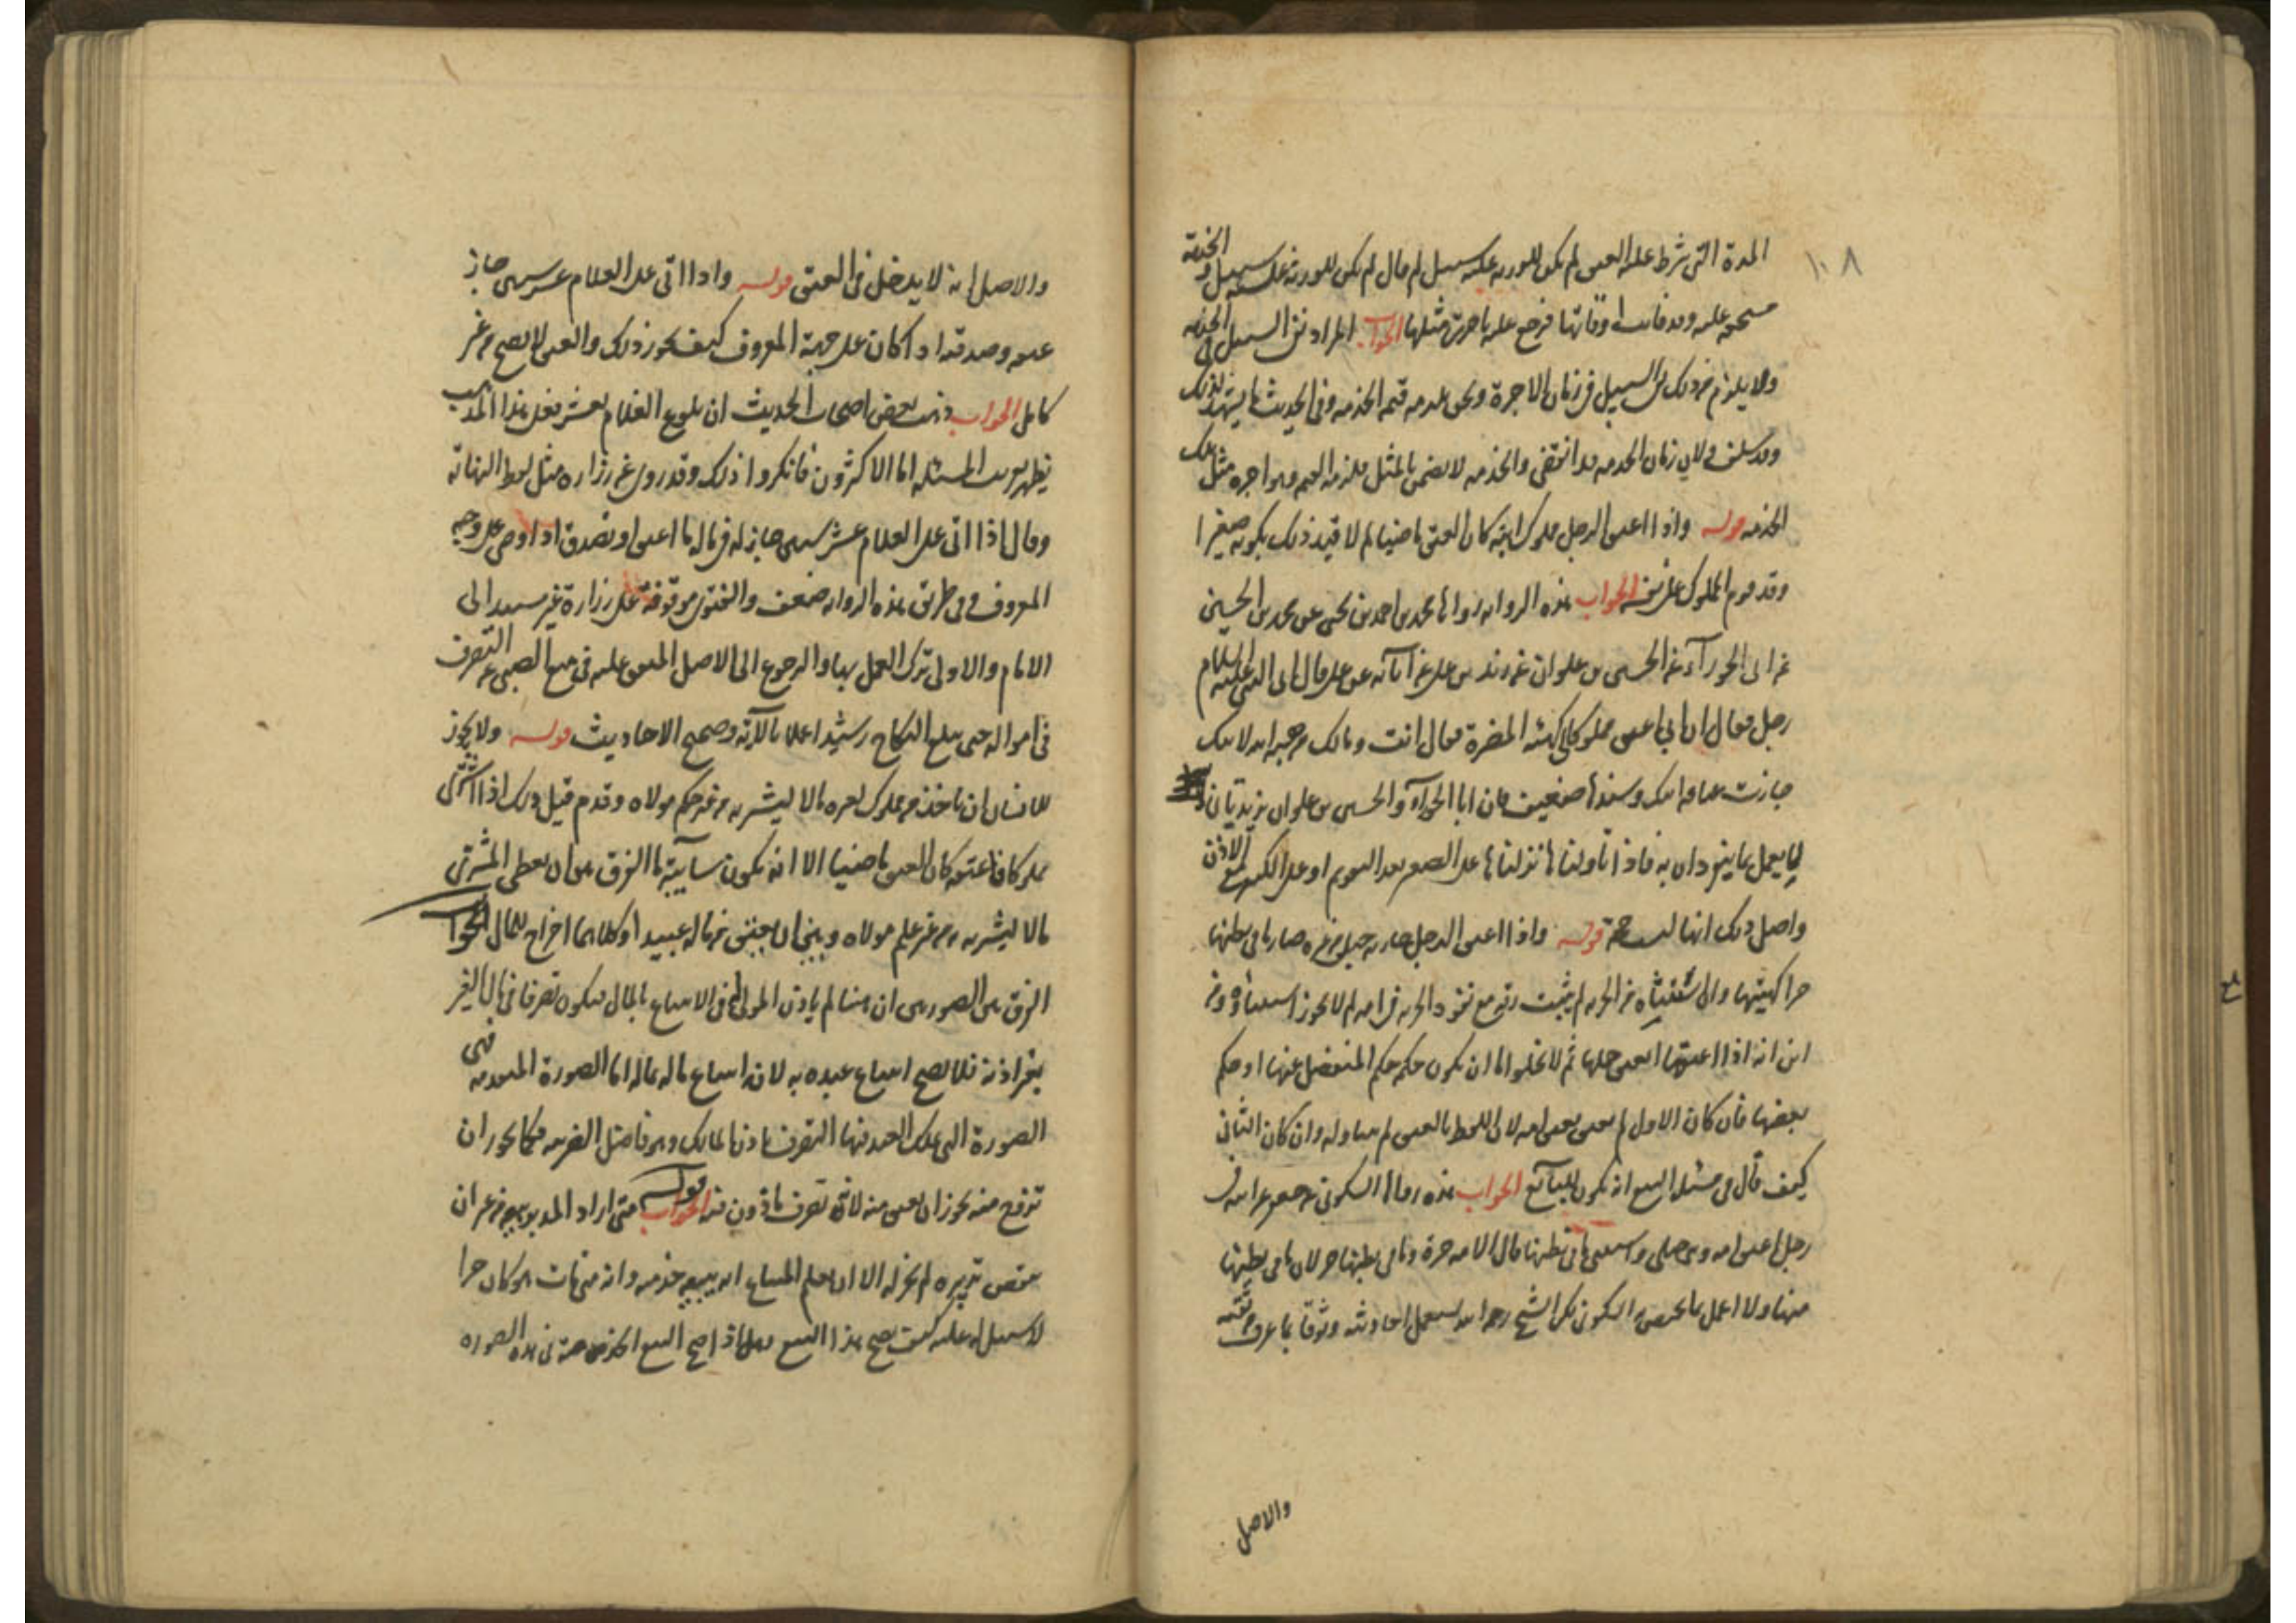 ١٠٨
المدة التى شرط عليه العتق لم يكن للورثة عليه سبيل ثم قال لم يكن للورثة عليه سبيل و الخدمة
مستحقة عليه وقد فاتت اوقاتها فرجع عليه باجرة مثلها الجواب المراد نفى السبيل فى الخدمة
ولا يلزم من ذلك نفى السبيل فى زمان الاجرة ونحن نلزمه قيمة الخدمة وفى الحديث ما يشهد لذلك
زمان الخدمة قد انقضى والخدمة لا تضمن بالمثل فلزمه القيمة وهو اجرة مثل تلك
الخدمة قوله واذا اعتق الرجل مملوك ابنه كان العتق ماضيا لم لا قيد ذلك بكونه صغيرا
وقد قوم المملوك على نفسه الجواب هذه الرواية رواها محمد بن احمد بن يحيى عن محمد بن الحسين
عن ابى الجوزآء عن الحسين بن علوان عن زيد بن على عن آبائه عن على قال اتى النبى عليه السلام
رجل فقال ان ابى اعتق مملوكا لى كهيئة المضرة فقال انت ومالك من هبة الله لابيك
جازت عتاقة ابيك وسندها ضعيف فان ابا الجوزآء والحسين بن علوان يزيديان
لا يعمل بما ينفردان به فاذا تأولناها نزلناها على الصغير بعد التقويم او على الكبير مع الاذن
واصل ذلك انها ليست حجة قوله واذا اعتق الرجل جارية حبلى من غيره صار ما فى بطنها
حرا كهيئتها وان استثناه من الحرية لم يثبت رقه مع نفوذ الحرية فى امه لم لا يجوز استثناؤه ومن
اين انه اذا اعتقها انعتق حملها ثم لا يخلو اما ان يكون حكمه حكم المنفصل عنها او حكم
بعضها فان كان الاول لم يعتق بعتق امه لان اللفظ بالعتق لم يتناوله وان كان الثانى
كيف قال فى مسئلة البيع انه يكون للبايع الجواب هذه رواها السكونى عن جعفر عن ابيه فى
رجل اعتق امه وهى حبلى واستثنى ما فى بطنها قال الامه حرة وما فى بطنها حر لان ما فى بطنها
منها ولا اعمل بما يختص به السكونى لكن الشيخ رحمه الله يستعمل احاديثه وثوقا بما عرف من ثقته
والاصل
والاصل انه لا يدخل فى العتق قوله واذا اتى على الغلام عشر سنين جاز
عتقه وصدقته اذا كان على جهة المعروف كيف يجوز ذلك والعتق لا يصح من غير
كامل الجواب ذهب بعض اصحاب الحديث ان بلوغ الغلام بعشر فعلى هذا المذهب
يظهر المسئلة اما الاكثرون فانكروا ذلك وقد روى عن زرارة مثل لفظ النهاية
وقال اذا اتى على الغلام عشر سنين جاز له فى ماله ما اعتق او تصدق او اوصى على وجه
المعروف وفى طريق هذه الرواية ضعف والفتوى موقوفة على زرارة غير مسندة الى
الامام والاولى ترك العمل بها والرجوع الى الاصل المتفق عليه فى منع الصبى عن التصرف
فى امواله حتى يبلغ النكاح رشيدا عملا بالآية وصحيح الاحاديث قوله ولا يجوز
للانسان ان ياخذ من مملوك لغيره مالا ليشتريه من غير حكم مولاه وقدم قبل ذلك اذا اشترى
مملوكا فاعتقه كان العتق ماضيا الا انه يكون سآيبة ما الفرق بين ان يعطى المشترى
مالا ليشتريه من غير علم مولاه وبين ان يعتق من ماله عبيدا وكلاهما اخراج للمال الجواب
الفرق بين الصورتين ان هنا لم ياذن المولى فى الابتياع بالمال فيكون تصرفا فى مال الغير
بغير اذنه فلا يصح ابتياع عبده به لانه ابتياع ماله بماله اما الصورة المتقدمة فهى
الصورة التى يملك العبد فيها التصرف باذن المالك وهو فاضل الضريبة فكما يجوز ان
تزوج منه يجوز ان يعتق منه لانه تصرف ماذون فيه قوله الجواب متى اراد المدبر بيعه من غير ان
ينقض تدبيره لم يجز له الا ان يعلم المبتاع انه يبيعه خدمته وانه متى مات هو كان حرا
لا سبيل له عليه كيف يصح هذا البيع وهل اذا صح البيع فى هذه الصورة